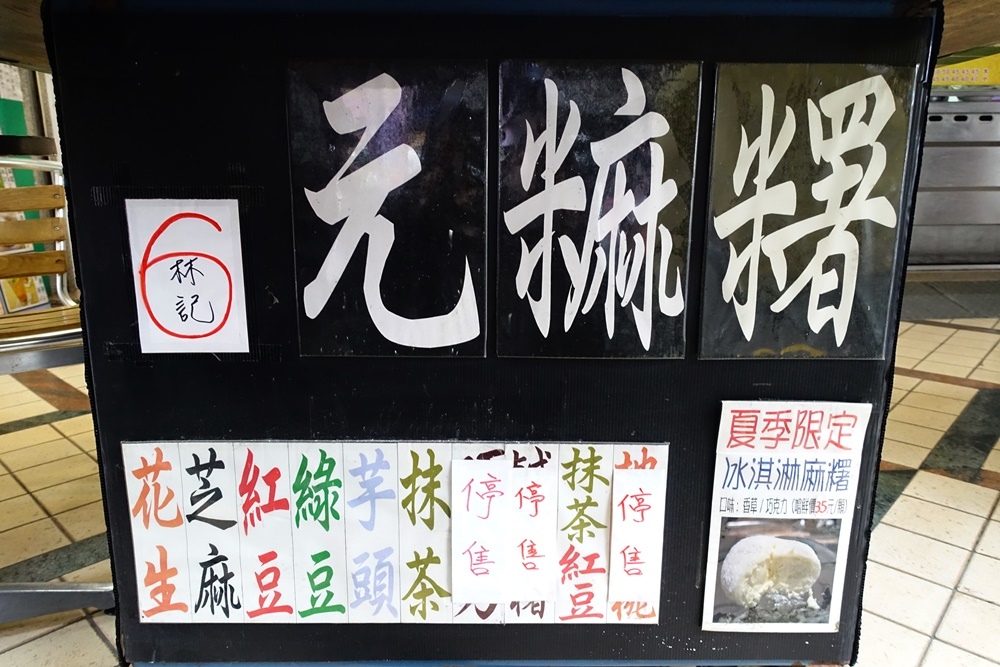 元 麻糬
6
林記
花生
芝麻
紅豆
綠豆
芋頭
抹茶
停售
停售
抹茶紅豆
停售
夏季限定
冰淇淋麻糬
口味：香草/巧克力（嚐鮮價35元/顆）